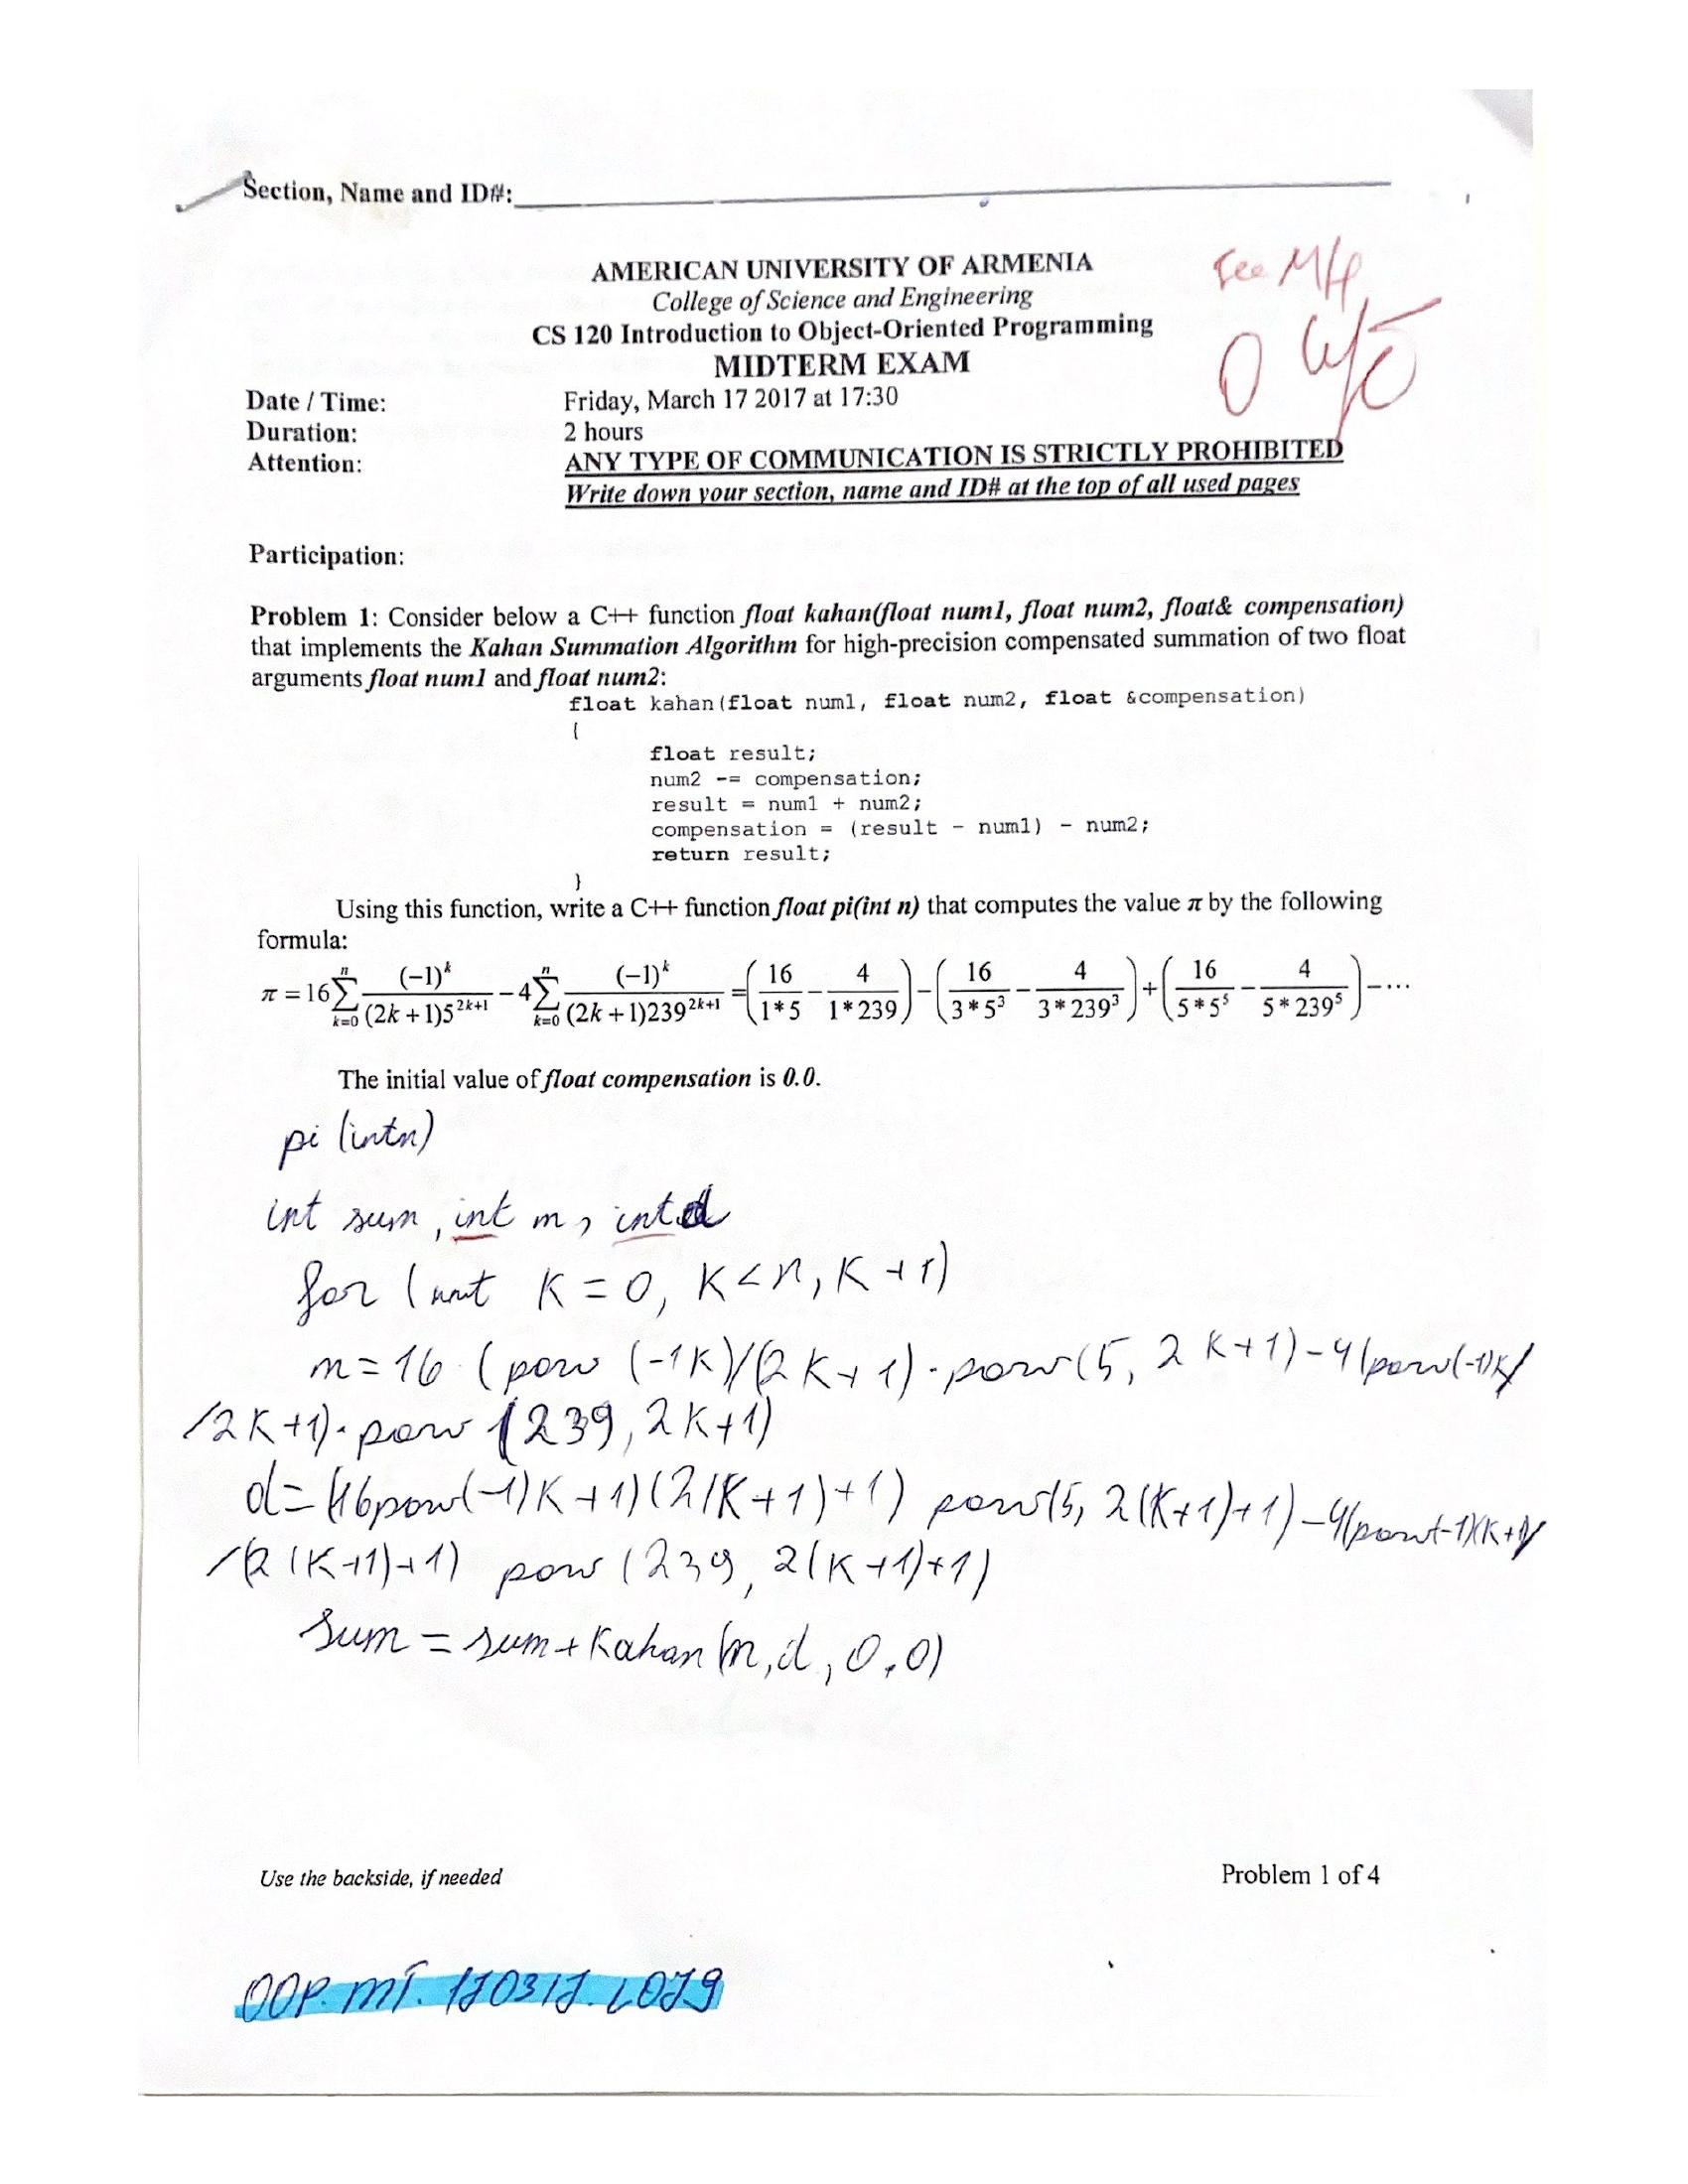 Section, Name and ID#:
AMERICAN UNIVERSITY OF ARMENIA
College of Science and Engineering
CS 120 Introduction to Object-Oriented Programming
MIDTERM EXAM
See
0
Date / Time: Friday, March 17 2017 at 17:30
Duration: 2 hours
Attention: ANY TYPE OF COMMUNICATION IS STRICTLY PROHIBITED
Write down your section, name and ID# at the top of all used pages
Participation:
Problem 1: Consider below a C++ function float kahan(float num1, float num2, float& compensation)
that implements the Kahan Summation Algorithm for high-precision compensated summation of two float
arguments float num1 and float num2:
float kahan(float num1, float num2, float &compensation)
{
float result;
num2 -= compensation;
result = num1 + num2;
compensation = (result - num1) - num2;
return result;
}
Using this function, write a C++ function float pi(int n) that computes the value π by the following
formula:
π = 16 ∑_{k=0}^{n} (-1)^k / ((2k+1)5^{2k+1}) - 4 ∑_{k=0}^{n} (-1)^k / ((2k+1)239^{2k+1}) = (16/(1*5) - 4/(1*239)) - (16/(3*5^3) - 4/(3*239^3)) + (16/(5*5^5) - 4/(5*239^5)) - ...
The initial value of float compensation is 0.0.
pi (int n)
int sum, int m, int d
for (int K = 0, K < n, K + 1)
m = 16 · (pow (-1K)/(2K+1) · pow(5, 2K+1) - 4(pow(-1)K/
/2K+1) · pow (239, 2K+1)
d = (16pow(-1)K+1)(2(K+1)+1) pow(5, 2(K+1)+1) - 4(pow(-1)(K+1)/
/(2(K+1)+1) pow (239, 2(K+1)+1)
Sum = sum + Kahan (m, d, 0.0)
Use the backside, if needed
Problem 1 of 4
OOP. MT. 170317. L079